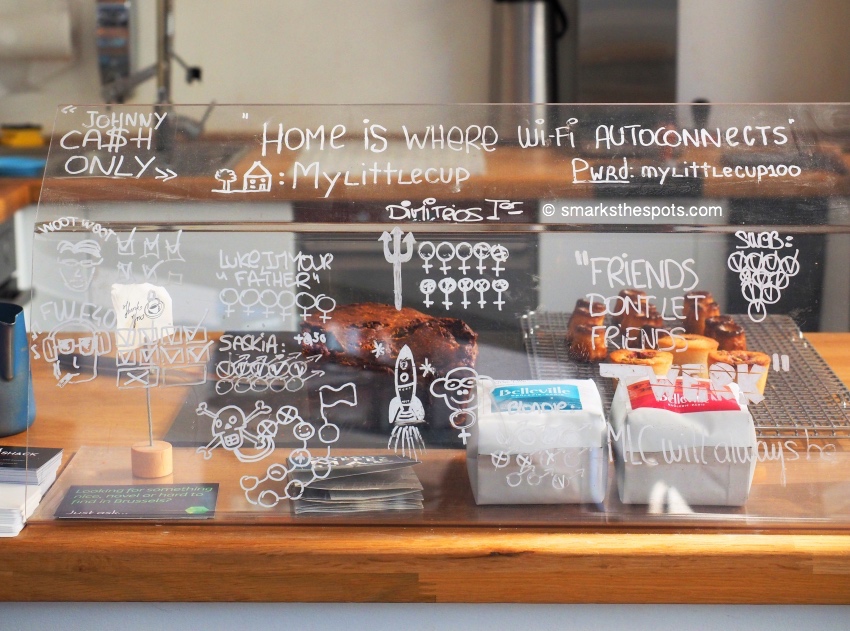 "JOHNNY
CA$H
ONLY"
"HOME iS WHERE Wi-Fi AUTOCONNECTS"
: MyLittlecup
Pwrd: myLittlecup100
Dimitrios Ier
© smarksthespots.com
WOOT WOOT
LUKE IM YOUR
FATHER"
SASKIA: +0,50
SNCB:
"FRIENDS
DONT LET
FRIENDS
TWERK"
MLC will always be
Belleville
Belleville
thank
you
SHACK
Looking for something
nice, novel or hard to
find in Brussels?
Just ask...